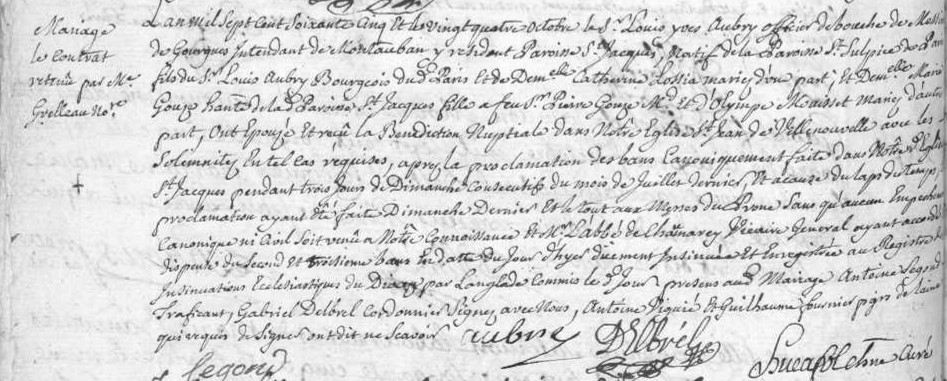 Mariage
le contrat
retenu par Me
Grelleau Nore
L'an Mil Sept Cent Soixante Cinq Et le vingt quatre octobre le Sr Louis yves Aubry officier de bouche de
de Gourgues intendant de Montauban y resident Paroisse St Jacques, Natif de la Paroisse St Sulpice de Paris
fils du Sr Louis Aubry Bourgeois dud Paris Et de Demelle Catherine Lossia mariez d'une part, Et Demelle Marie
Gouze hante de la d Paroisse St Jacques fille a feu Sr Pierre Gouze Md Et d'Olympe Maisset mariez d'autre
part, Ont Epousé Et reçu la Benediction Nuptiale dans Notre Eglise St Jean de Villenouvelle avec les
Solemnitez En tel cas requises, aprez la proclamation des bans Canoniquement faite dans Notre d Eglise
St Jacques pendant trois Jours de Dimanche Consecutifs du mois de Juillet dernier, Et a cause du laps de temps,
proclamation ayant été faite Dimanche Dernier Et le tout aux Messes du Prone Sans qu'aucun Empechemt
Canonique ni Civil Soit venû a Notre Connoissance Et Mr L'abbé de Vicaire General ayant accordé
dispense du Second Et troisieme bans En datte du Jour d'hyer duement Insinuée Et Enregistrée au Registre des
Insinuations Ecclesiastiques du Dioceze par Langlade Commis le d Jour, presens aud Mariage Antoine Segond
Traficant, Gabriel Delbrel Cordonnier Signez avec Nous, Antoine Viguié Et Guillaume fournier pigrs de laine
qui requis de Signer ont dit ne Scavoir
aubry Delbrél
Segond Curé